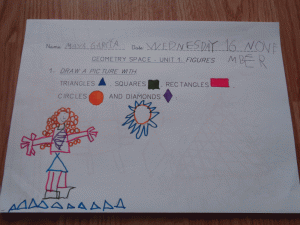 Name: GARCÍA Date: WEDNESDAY 16 NOVE
MBER
GEOMETRY SPACE - UNIT 1. FIGURES
1. DRAW A PICTURE WITH
TRIANGLES , SQUARES , RECTANGLES ,
CIRCLES AND DIAMONDS